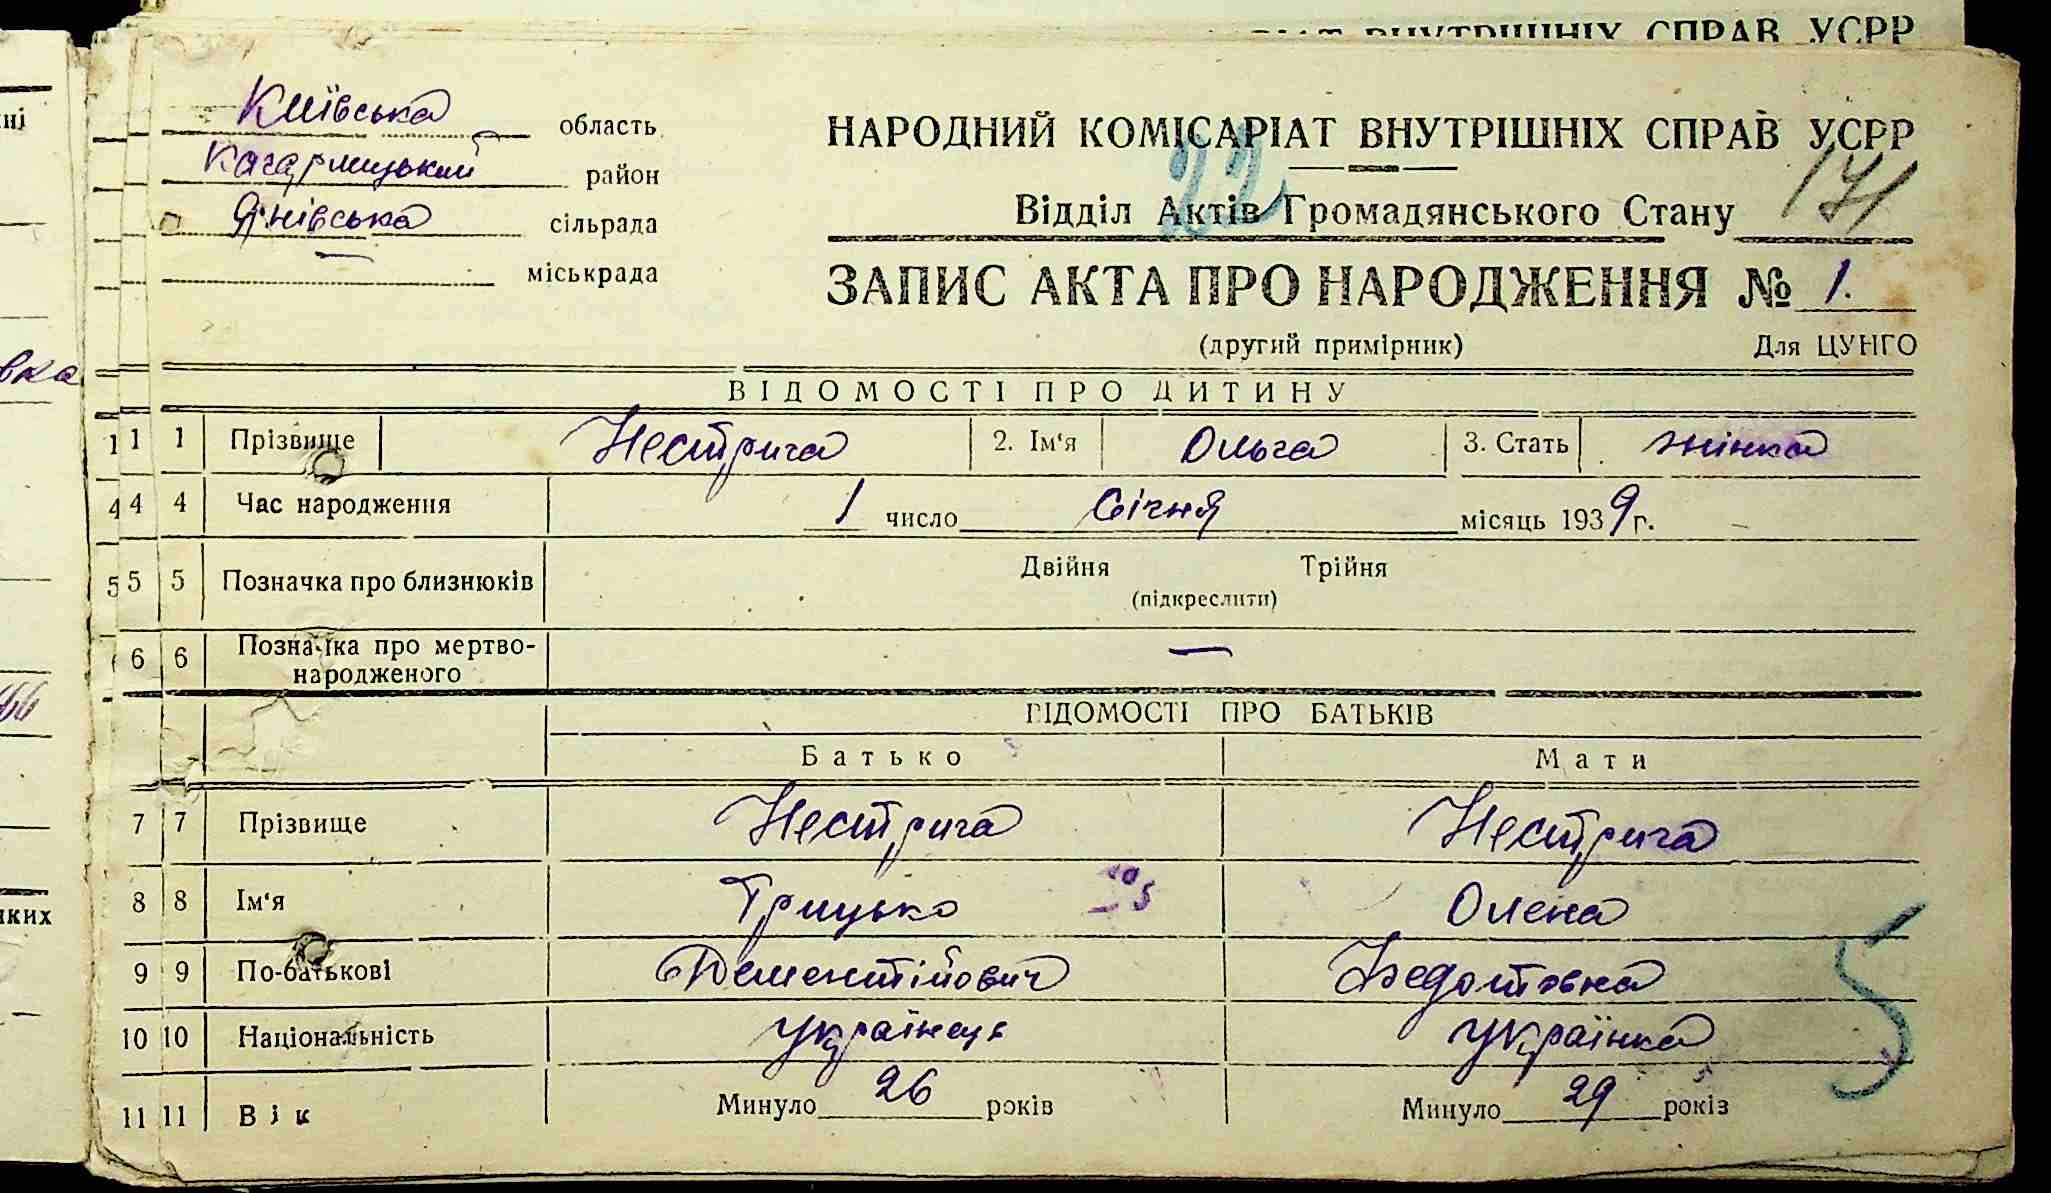 ВНУТРІШНІХ СПРАВ УСРР
Київська область
Кагарлицький район
Янівська сільрада
— міськрада
НАРОДНИЙ КОМІСАРІАТ ВНУТРІШНІХ СПРАВ УСРР
22
171
Відділ Актів Громадянського Стану
ЗАПИС АКТА ПРО НАРОДЖЕННЯ № 1.
(другий примірник) Для ЦУНГО
ВІДОМОСТІ ПРО ДИТИНУ
1 1 1 Прізвище Нестрича 2. Ім'я Ольга 3. Стать жінка
4 4 4 Час народження 1 число Січня місяць 1939 г.
5 5 5 Позначка про близнюків Двійня Трійня
(підкреслити)
6 6 Позначка про мертво-
народженого —
ВІДОМОСТІ ПРО БАТЬКІВ
Батько Мати
7 7 Прізвище Нестрича Нестрича
8 8 Ім'я Грицько Олена
9 9 По-батькові Дементійович Федотовна
10 10 Національність українець українка
5
11 11 Вік Минуло 26 років Минуло 29 років
вка
яких